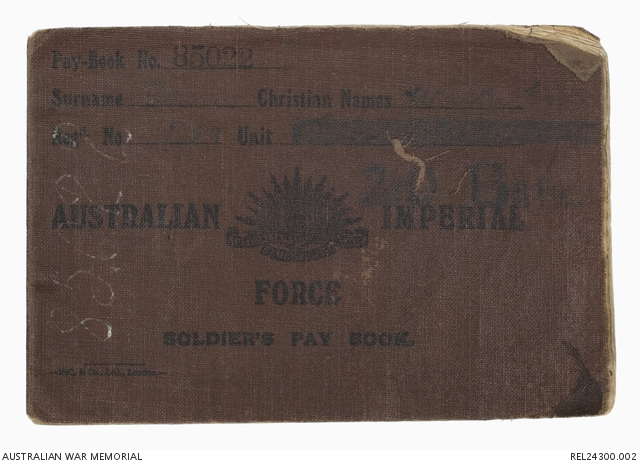 Pay-Book No. 85022
Surname Christian Names
Reg'l. No. Unit
2nd
AUSTRALIAN IMPERIAL
FORCE
SOLDIER'S PAY BOOK.
& Co., Ltd., London.
AUSTRALIAN WAR MEMORIAL
REL24300.002